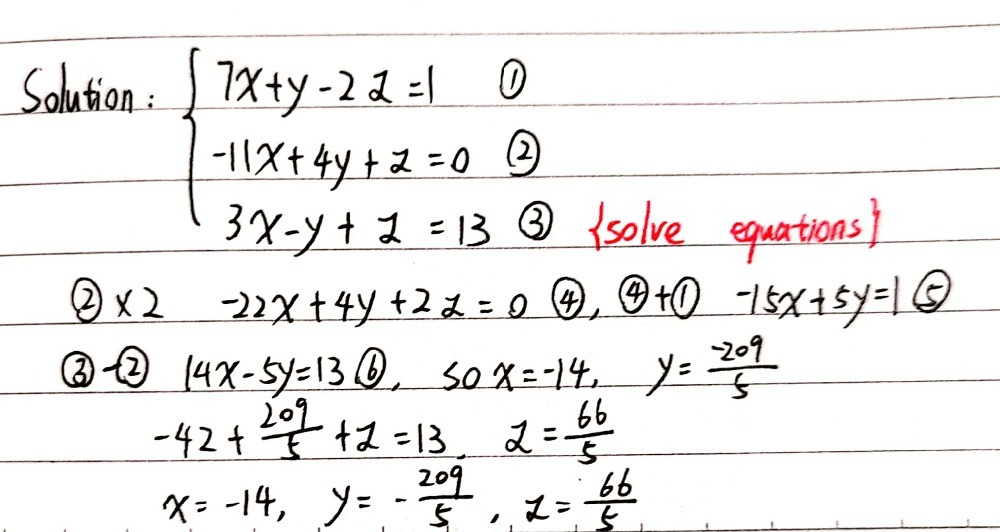 Solution: { 7x+y-2z=1 ①
-11x+4y+z=0 ②
3x-y+z=13 ③ {solve equations}
②×2 -22x+4y+2z=0 ④, ④+① -15x+5y=1 ⑤
③-② 14x-5y=13 ⑥, so x=-14, y=\frac{-209}{5}
-42+\frac{209}{5}+z=13, z=\frac{66}{5}
x=-14, y=-\frac{209}{5}, z=\frac{66}{5}